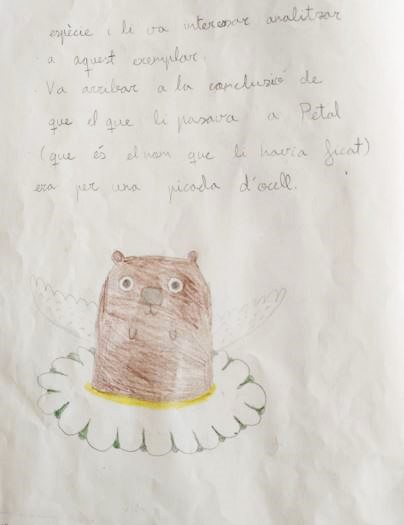 espècie i li va interessar analitzar
a aquest exemplar.
Va arribar a la conclusió de
que el que li pasava a Petal
(que és el nom que li havia ficat)
era per una picada d'ocell.